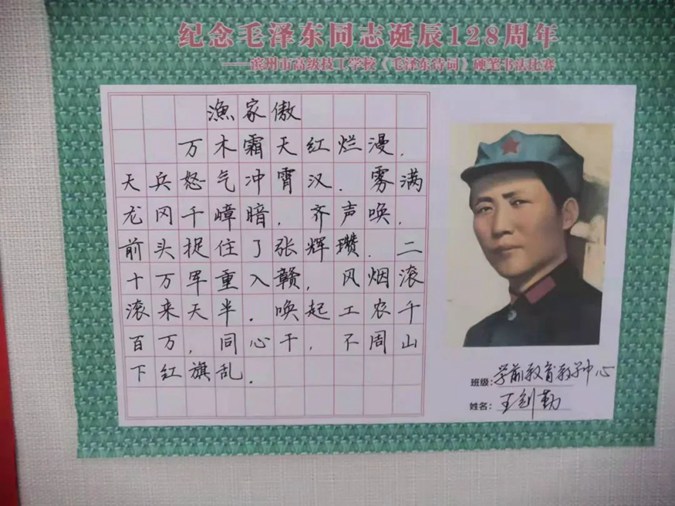 纪念毛泽东同志诞辰128周年
市高级技工学校《毛泽东诗词》硬笔书法比赛
漁家傲
万木霜天红烂漫.
天兵怒气冲霄汉.雾满
龙冈千嶂暗.齐声唤.
前头捉住了张辉瓒.二
十万军重入赣,风烟滚
滚来天半.唤起工农千
百万,同心干,不周山
下红旗乱.
班级:学前教育教学中心
姓名:王剑勤